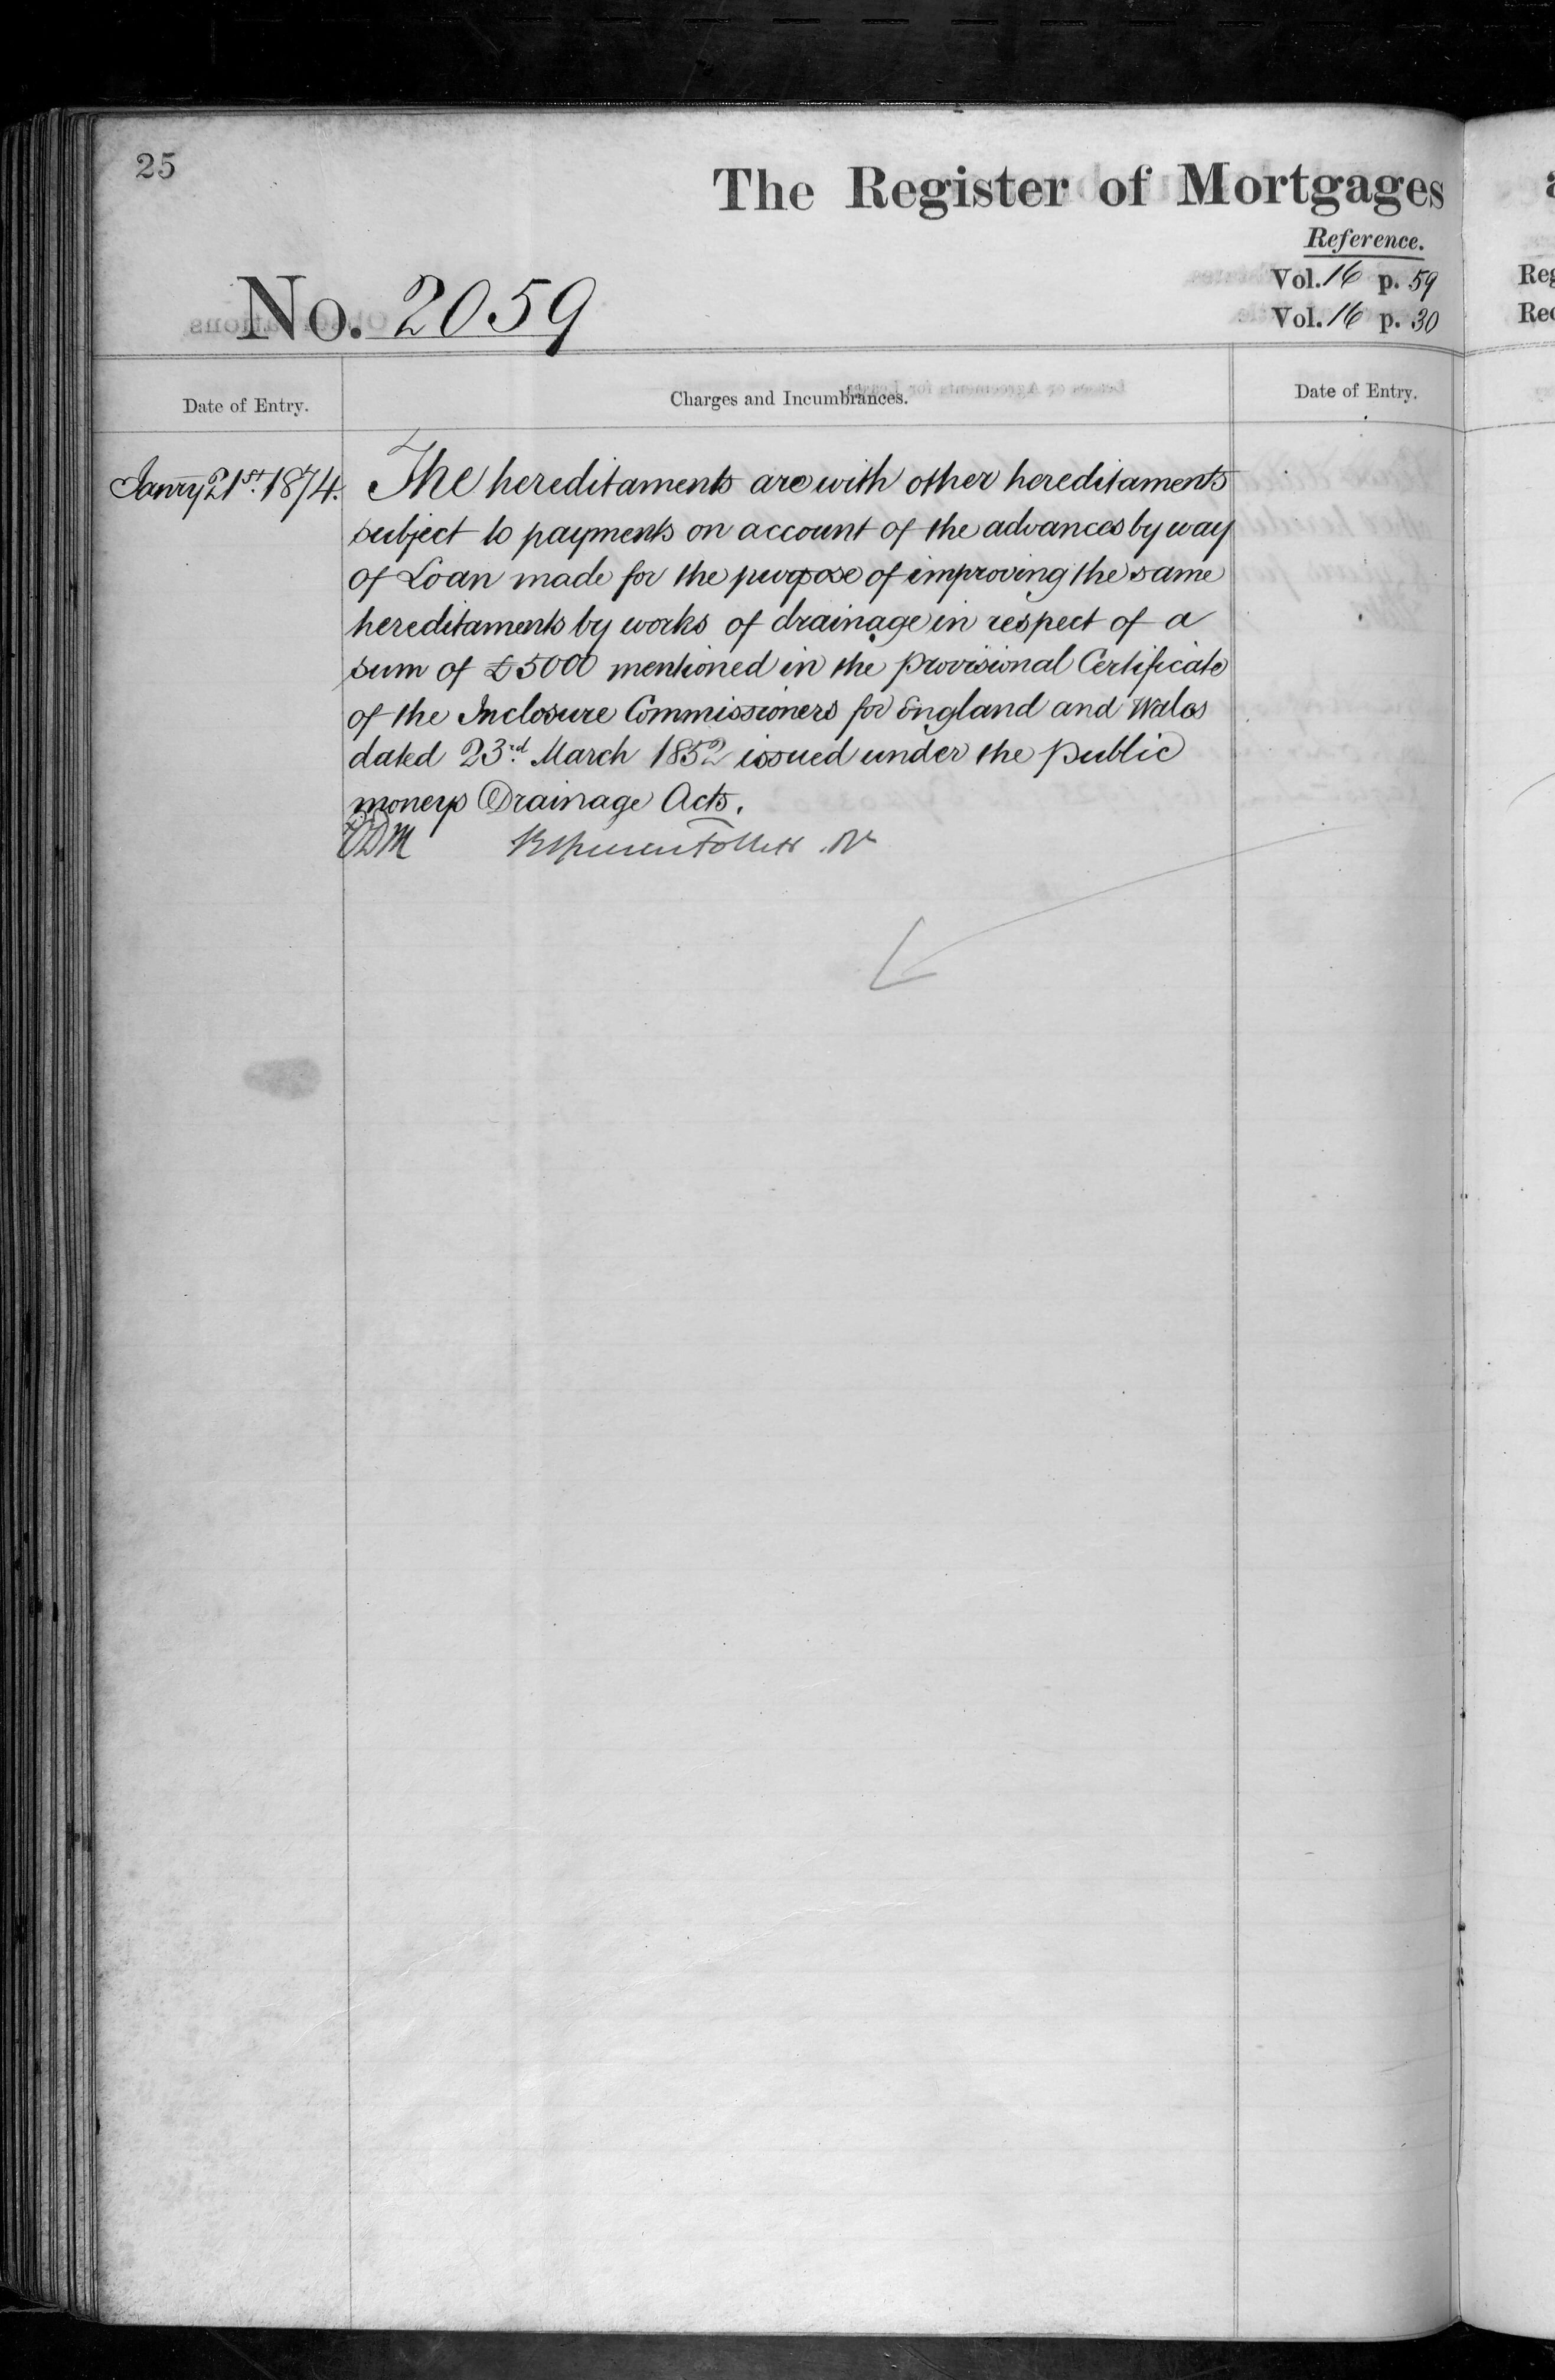 25
The Register of Mortgages
Reference.
Vol. 16 p. 59
Vol. 16 p. 30
No. 2059
Date of Entry.
Charges and Incumbrances.
Date of Entry.
Janry 21st. 1874.
The hereditaments are with other hereditaments
subject to payments on account of the advances by way
of Loan made for the purpose of improving the same
hereditaments by works of drainage in respect of a
sum of £5000 mentioned in the provisional Certificate
of the Inclosure Commissioners for England and Wales
dated 23rd. March 1852 issued under the public
moneys Drainage Acts.
Reg
Rec